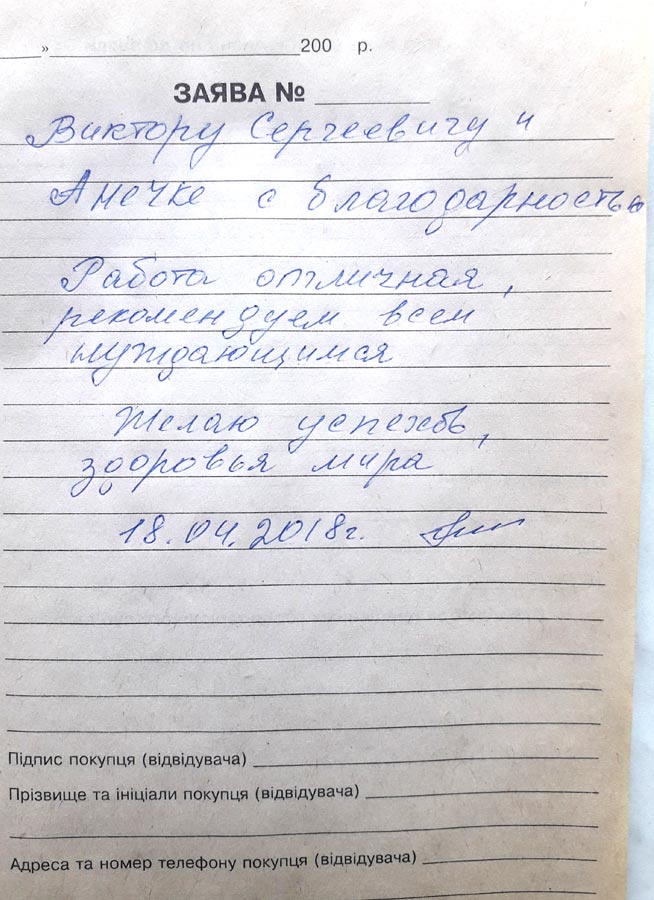 » 200 р.
ЗАЯВА №
Виктору Сергеевичу и
Анечке с благодарностью
Работа отличная,
рекомендуем всем
нуждающимся
Желаю успехов,
здоровья мира
18.04.2018г.
Підпис покупця (відвідувача)
Прізвище та ініціали покупця (відвідувача)
Адреса та номер телефону покупця (відвідувача)